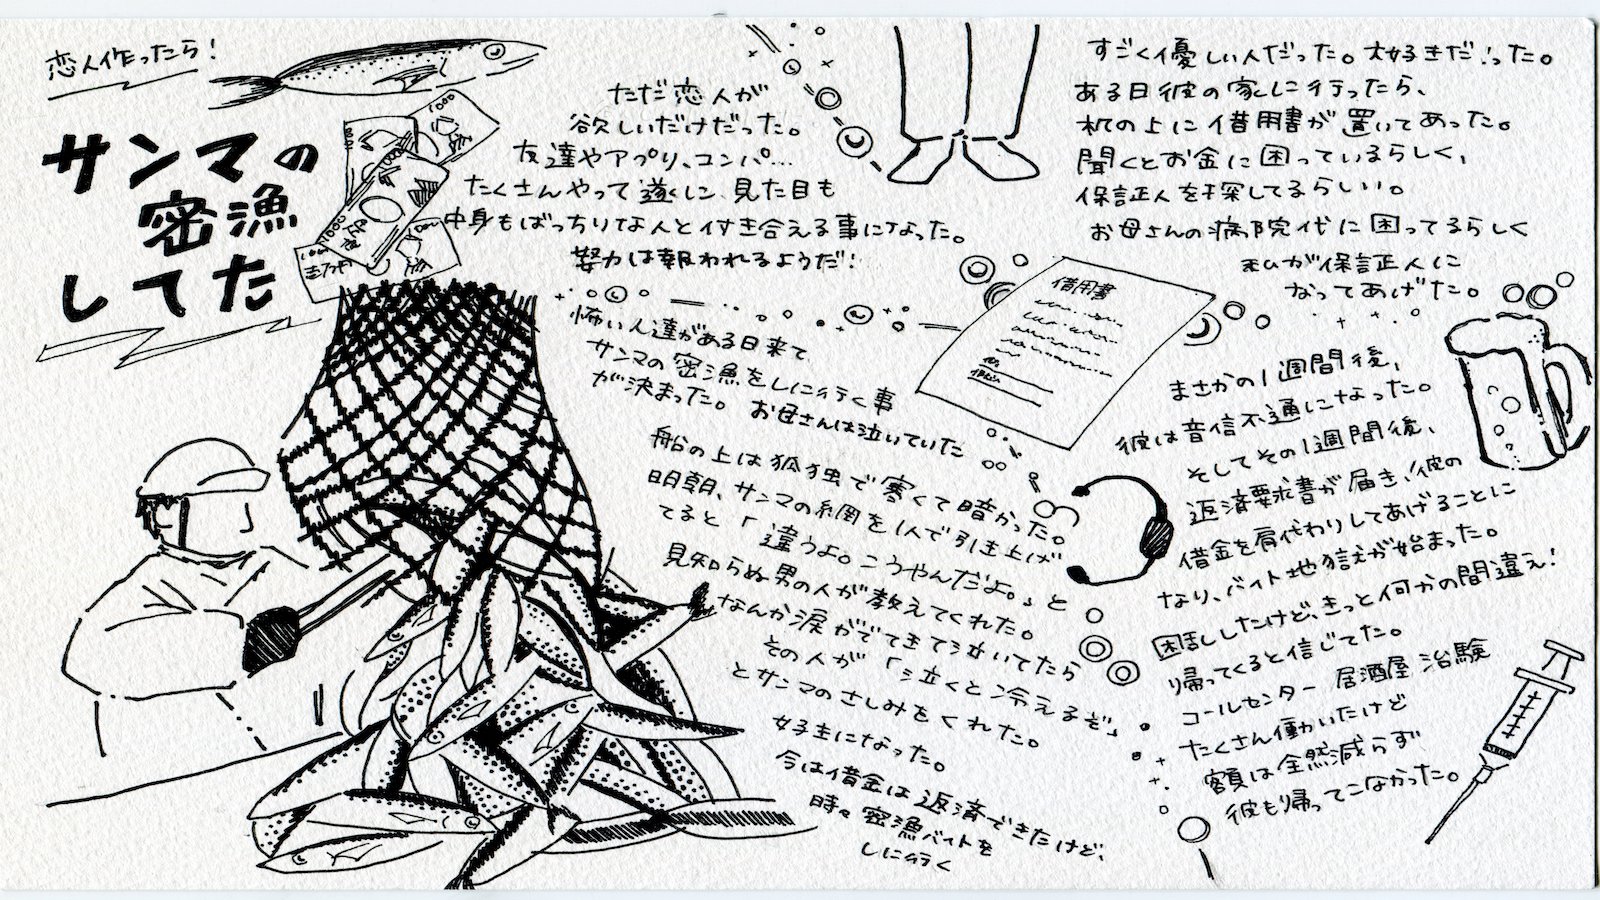 恋人作ったら!
サンマの
密漁
してた
ただ恋人が
欲しいだけだった。
友達やアプリ、コンパ…
たくさんやって遂に、見た目も
中身もばっちりな人と付き合える事になった。
努力は報われるようだ!
すごく優しい人だった。大好きだった。
ある日彼の家に行ったら、
机の上に借用書が置いてあった。
聞くとお金に困っているらしく、
保証人を探してるらしい。
お母さんの病院代に困ってるらしく
私が保証人に
なってあげた。
借用書
まさかの1週間後、
彼は音信不通になった。
そしてその1週間後、
返済要求書が届き、彼の
借金を肩代わりしてあげることに
なり、バイト地獄が始まった。
困乱したけど、きっと何かの間違え!
帰ってくると信じてた。
コールセンター 居酒屋 治験
たくさん働いたけど
額は全然減らず
彼も帰ってこなかった。
怖い人達がある日来て
サンマの密漁をしに行く事
が決まった。お母さんは泣いていた
船の上は孤独で寒くて暗かった。
明朝、サンマの網を1人で引き上げ
てると「違うよ。こうやんだよ。」と
見知らぬ男の人が教えてくれた。
なんか涙がでてきて泣いてたら
その人が「泣くと冷えるぞ」
とサンマのさしみをくれた。
好きになった。
今は借金は返済できたけど、
時々密漁バイトを
しに行く